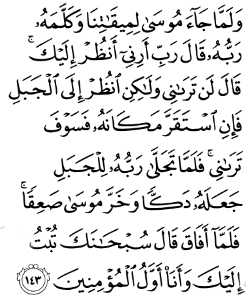 وَلَمَّا جَآءَ مُوسَىٰ لِمِيقَٰتِنَا وَكَلَّمَهُۥ
رَبُّهُۥ قَالَ رَبِّ أَرِنِىٓ أَنظُرْ إِلَيْكَ ۚ
قَالَ لَن تَرَىٰنِى وَلَٰكِنِ ٱنظُرْ إِلَى ٱلْجَبَلِ
فَإِنِ ٱسْتَقَرَّ مَكَانَهُۥ فَسَوْفَ
تَرَىٰنِى ۚ فَلَمَّا تَجَلَّىٰ رَبُّهُۥ لِلْجَبَلِ
جَعَلَهُۥ دَكًّا وَخَرَّ مُوسَىٰ صَعِقًا ۚ
فَلَمَّآ أَفَاقَ قَالَ سُبْحَٰنَكَ تُبْتُ
إِلَيْكَ وَأَنَا۠ أَوَّلُ ٱلْمُؤْمِنِينَ ١٤٣